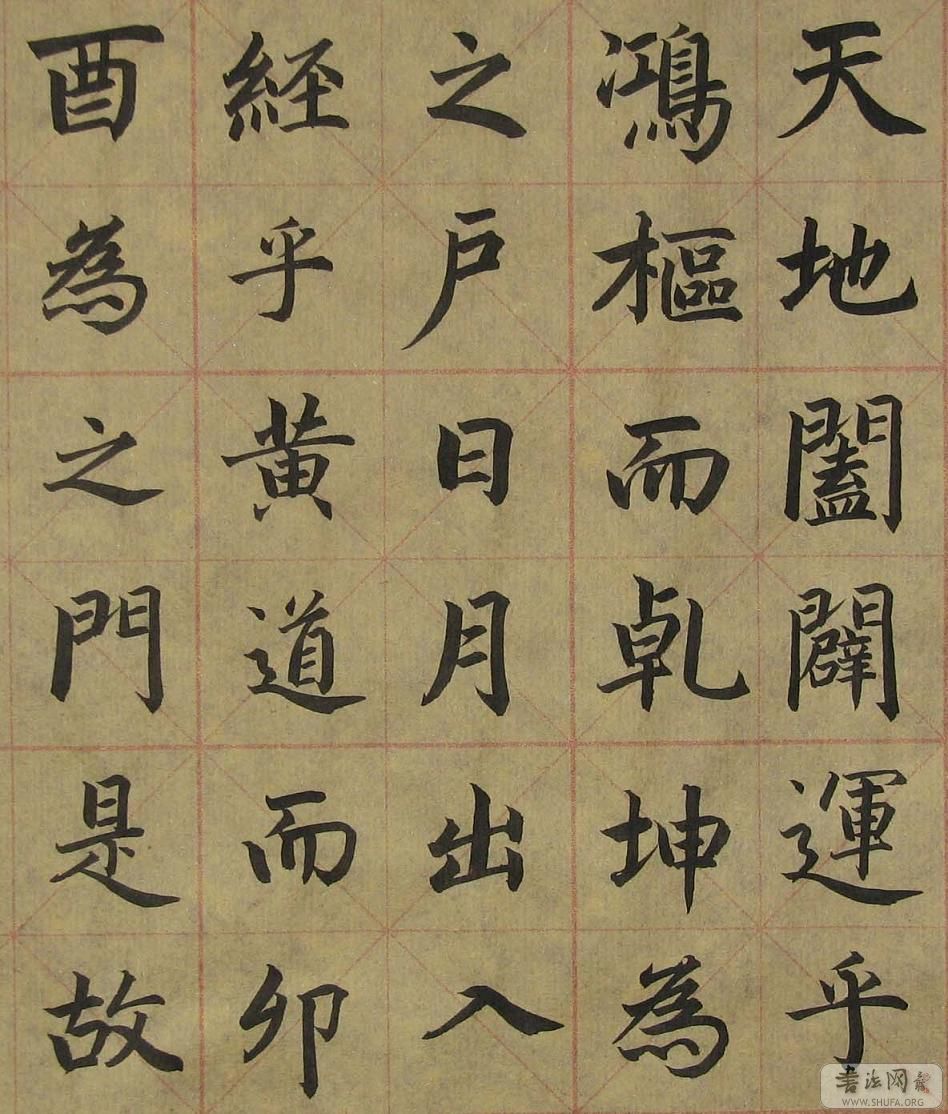 天地闔闢運乎
鴻樞而乹坤為
之户日月出入
經乎黄道而卯
酉為之門是故
书法网
WWW.SHUFA.ORG